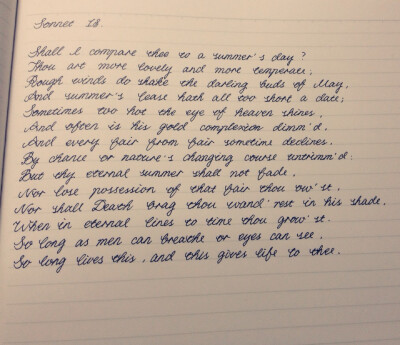 Sonnet 18.
Shall I compare thee to a summer's day?
Thou art more lovely and more temperate;
Rough winds do shake the darling buds of May,
And summer's lease hath all too short a date;
Sometimes too hot the eye of heaven shines,
And often is his gold complexion dimm'd,
And every fair from fair sometime declines,
By chance or nature's changing course untrimm'd:
But thy eternal summer shall not fade,
Nor lose possession of that fair thou ow'st,
Nor shall Death brag thou wand'rest in his shade,
When in eternal lines to time thou grow'st.
So long as men can breathe or eyes can see,
So long lives this, and this gives life to thee.